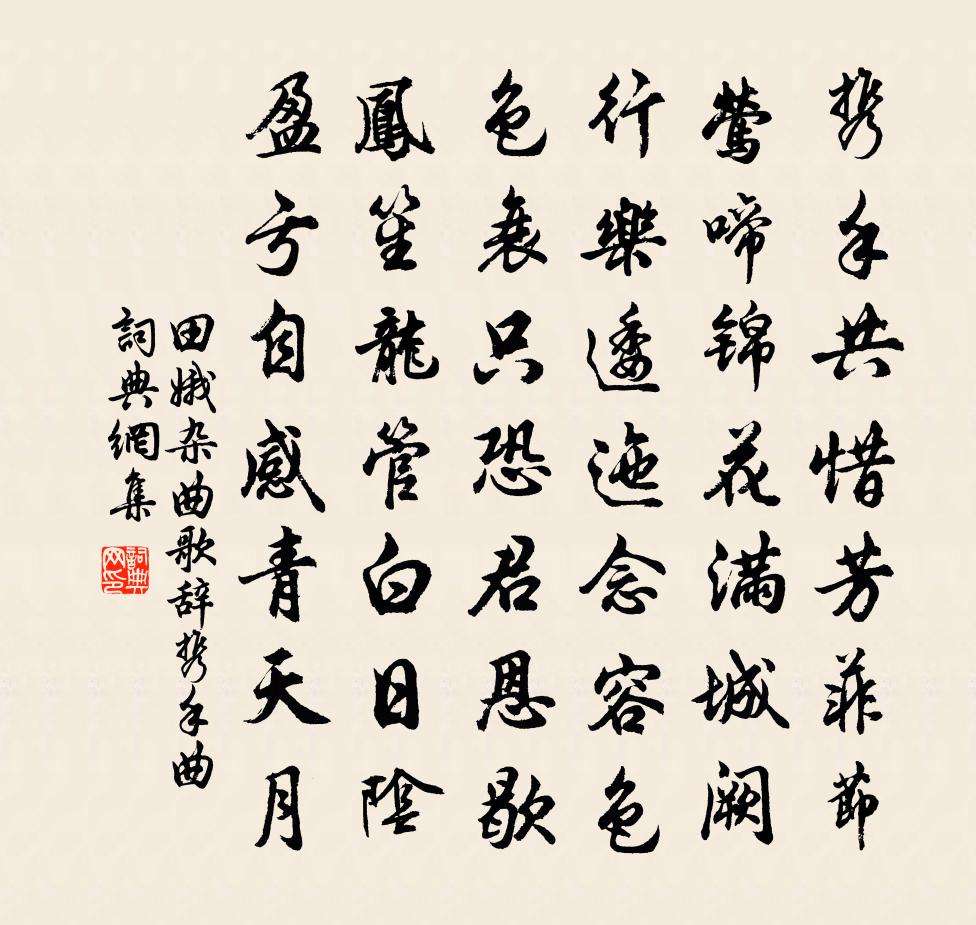 携手共惜芳菲節
鶯啼錦花滿城闕
行樂逶迤念容色
色衰只恐君恩歇
鳳笙龍管白日陰
盈亏自感青天月
田娥杂曲歌辞携手曲
詞典網集
詞典网印